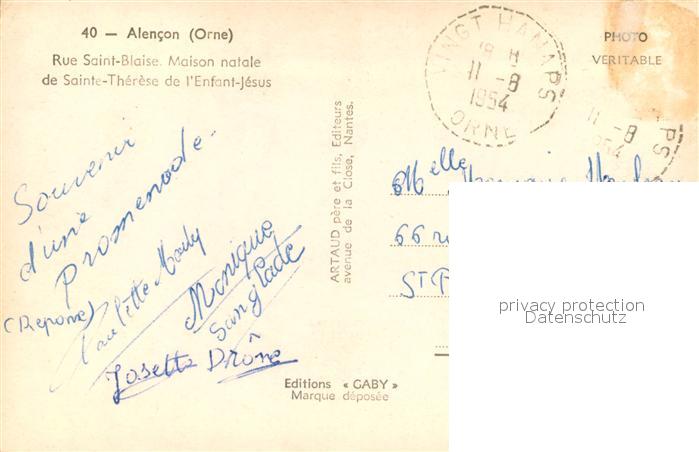 40 — Alençon (Orne)
Rue Saint-Blaise. Maison natale
de Sainte-Thérèse de l'Enfant-Jésus
Souvenir
d'une
promenade.
(Réponse)
Paulette
Monique
Sanglade
Josette Drône
ARTAUD père et fils, Editeurs
avenue de la Close, Nantes.
Editions « GABY »
Marque déposée
VINGT HANAPS
18 H
11 - 8
1954
ORNE
PHOTO
VERITABLE
11 - 8
1954
PS
Melle
66
St
privacy protection
Datenschutz